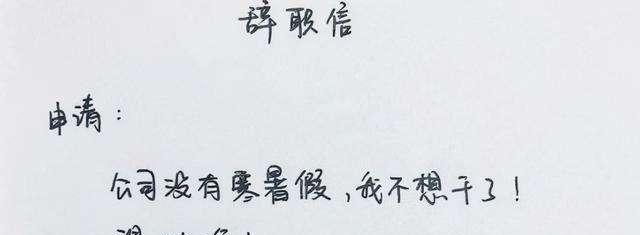 辞职信
申请：
公司没有寒暑假，我不想干了！